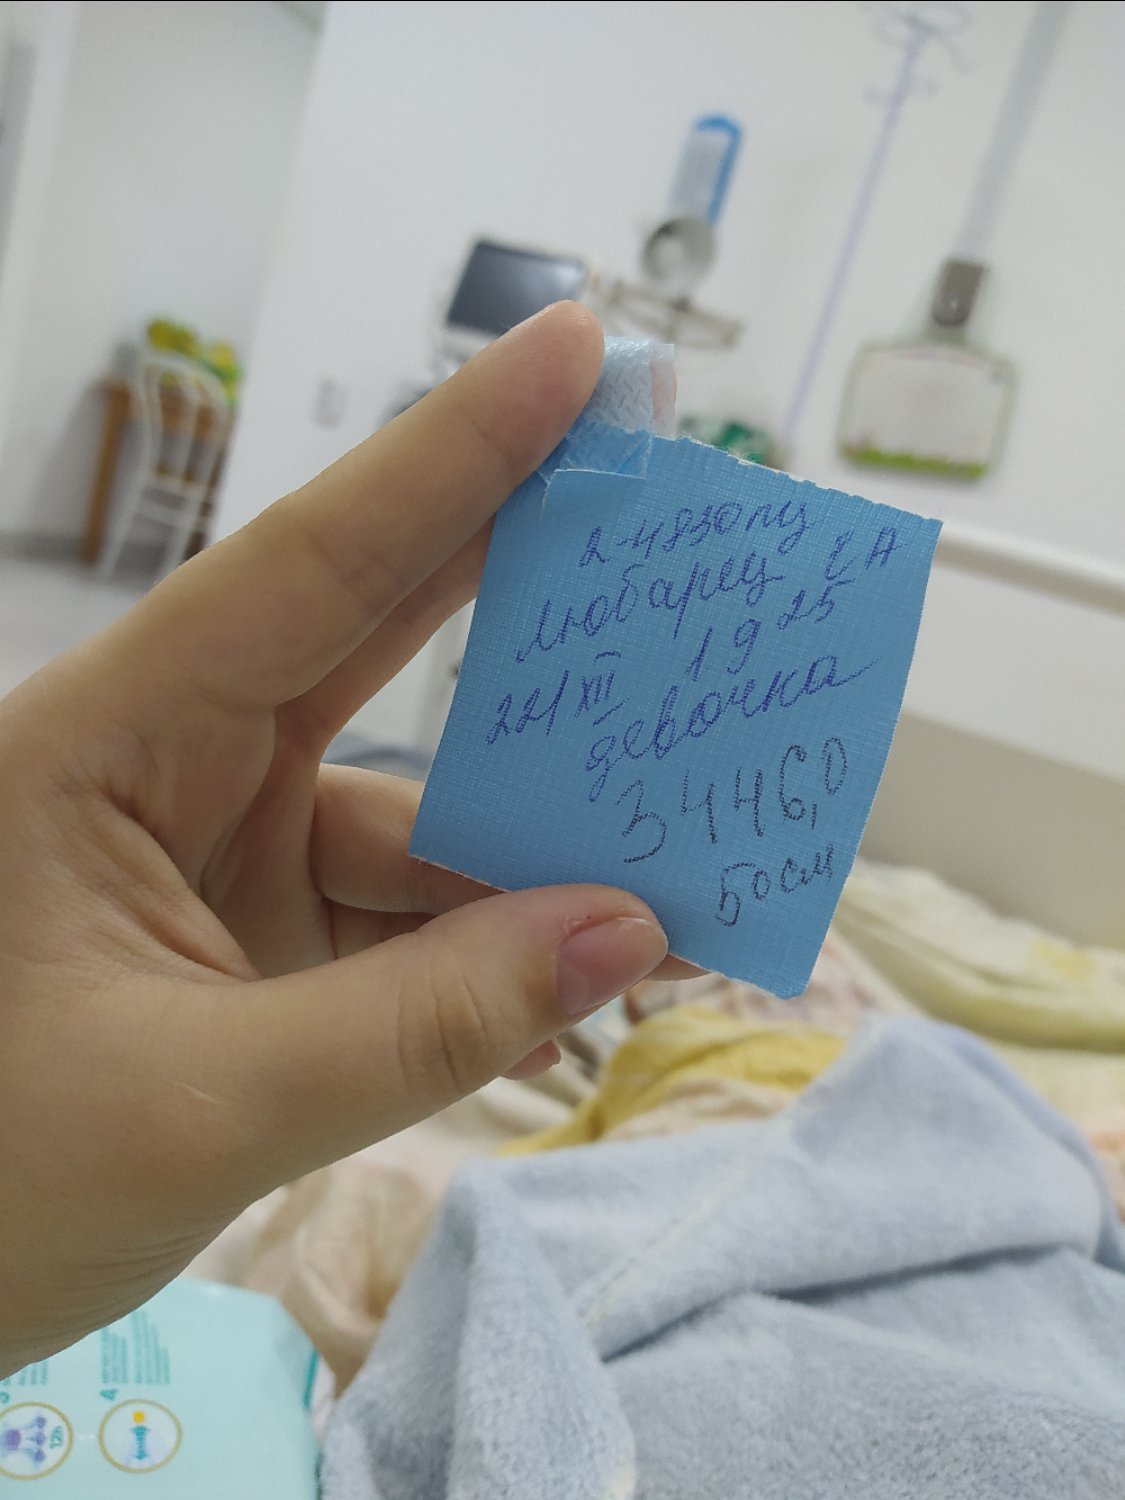 Любарец Е А
22/XII 19 25
девочка
3446,0
50 см
12h
4